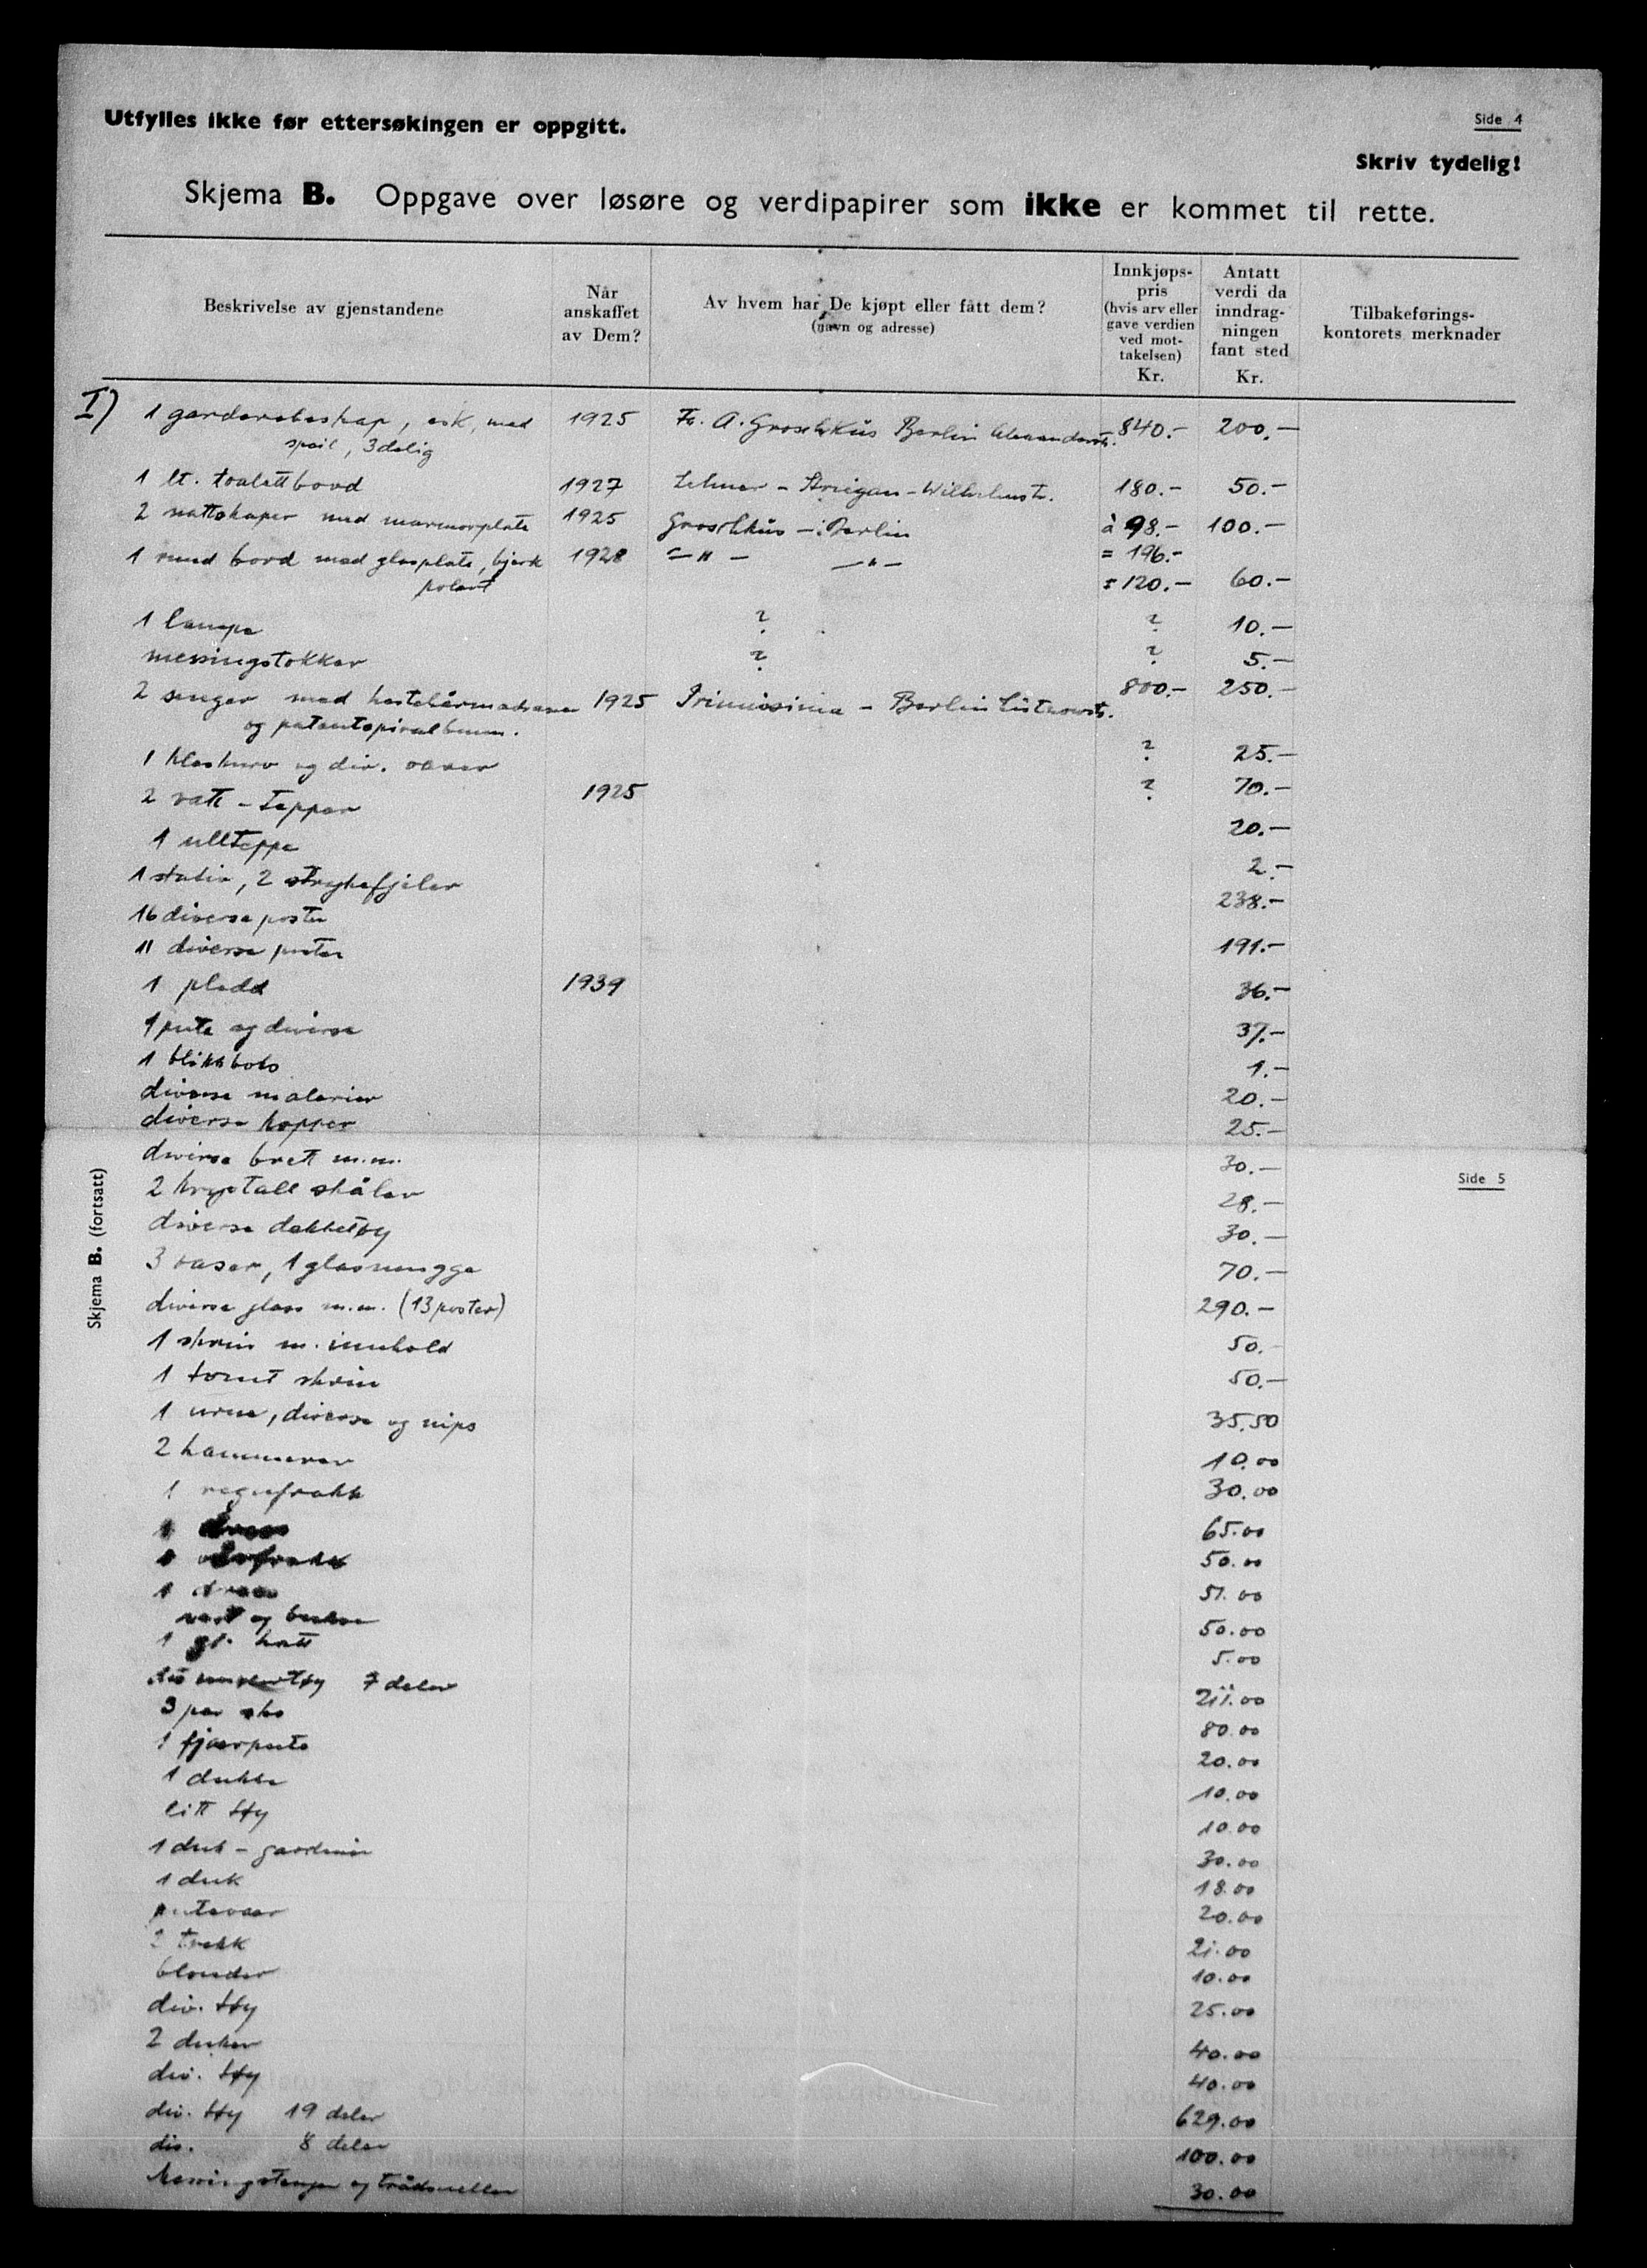 Utfylles ikke før ettersøkingen er oppgitt.
Side 4
Skriv tydelig!
Skjema B. Oppgave over løsøre og verdipapirer som ikke er kommet til rette.
Beskrivelse av gjenstandene
Når anskaffet av Dem?
Av hvem har De kjøpt eller fått dem? (navn og adresse)
Innkjøps-pris (hvis arv eller gave verdien ved mot-takelsen) Kr.
Antatt verdi da inndrag-ningen fant sted Kr.
Tilbakeførings-kontorets merknader
I) 1 garderobeskap, ask, med 1925 Fa. A. Groschkus Berlin 840.- 200.-
speil, 3delig
1 lt. toalettbord 1927 180.- 50.-
2 nattskaper med marmorplate 1925 Groschkus - Berlin à 98.- 100.-
= 196.-
1 rund bord med glasplate, bjerk 1928 -"- -"-
polert 120.- 60.-
1 lampe ? ? 10.-
messingstokker ? ? 5.-
2 senger med hestehårmadrasser 1925 Primissima - Berlin Lützowstr. 800.- 250.-
og patentspiralbunn.
1 kleskurv og div. vaser ? 25.-
2 vatt-tepper 1925 ? 70.-
1 ullteppe 20.-
1 stativ, 2 strykefjeler 2.-
16 diverse poster 238.-
11 diverse poster 191.-
1 pledd 1939 36.-
1 pute og diverse 37.-
1 blikkboks 1.-
diverse malerier 20.-
diverse kopper 25.-
diverse brett m.m. 30.-
Side 5
Skjema B. (fortsatt)
2 krystall skåler 28.-
diverse dekketøy 30.-
3 vaser, 1 glasmugge 70.-
diverse glass m.m. (13 poster) 290.-
1 skrin m. innhold 50.-
1 tomt skrin 50.-
1 urne, diverse og nips 35.50
2 hammerer 10.00
1 regnfrakk 30.00
1 dress 65.00
1 frakk 50.00
1 dress 51.00
vest og bukse 50.00
1 gl. hatt 5.00
7 deler 211.00
3 par sko 80.00
1 fjærpute 20.00
1 dukke 10.00
litt tøy 10.00
1 duk - gardiner 30.00
1 duk 18.00
putevaar 20.00
2 trekk 21.00
blonder 10.00
div. tøy 25.00
2 duker 40.00
div. tøy 40.00
div. tøy 19 deler 629.00
div. 8 deler 100.00
Messingstenger og trådsneller 30.00